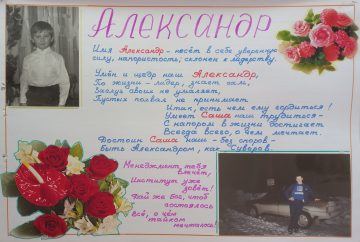 Александр
Имя Александр - несёт в себе уверенную
силу, напористость, склонен к лидерству.
Умён и щедр наш Александр,
По жизни - лидер, знает сам,
Заслуг своих не умаляет,
Пустых похвал не принимает
Итак, есть чем ему гордиться!
Умеет Саша наш трудиться -
С напором в жизни достигает
Всегда всего, о чём мечтает.
Достоин Саша наш - без споров -
Быть Александром, как Суворов
Менеджмент тебя
влечёт,
Институт уже
зовёт!
Дай же Бог, чтоб
состоялось
Всё, о чём
тайком
мечталось!